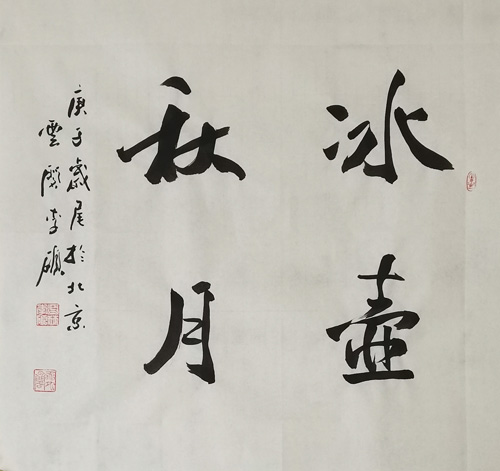 冰壺
秋月
庚子歲尾於北京
雲鶴李碩